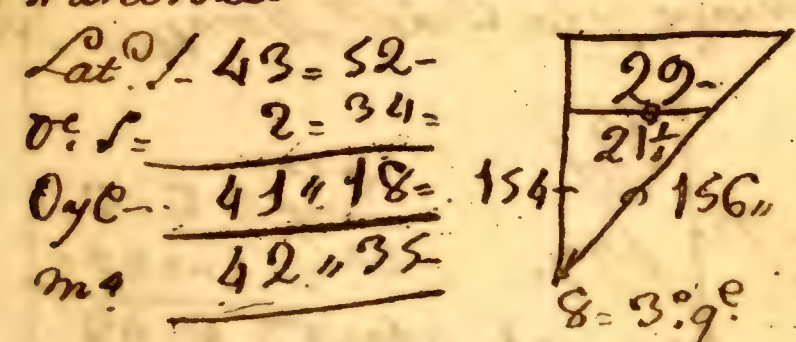 Lat.º S- 43=52-
Dᵉ S= 2=34=
Oye-- 41"18=
mª 42"35-
29-
21½
154-
156"
8=3º.gᵉ